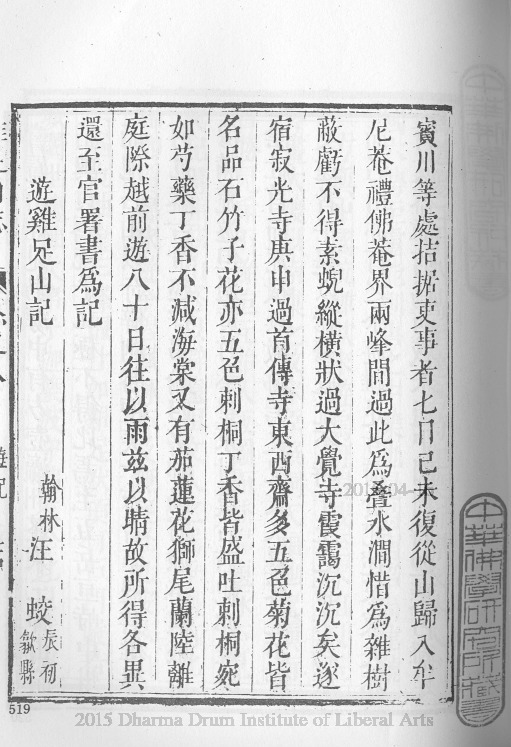 賓川等處拮据吏事者七日己未復從山歸入牟
尼菴禮佛菴界兩峰間過此爲疊水澗惜爲雜樹
蔽虧不得素蜺縱橫狀過大覺寺霞靄沉沉矣遂
宿寂光寺庚申過首傳寺東西齋多五色菊花皆
名品石竹子花亦五色刺桐丁香皆盛吐刺桐宛
如芍藥丁香不減海棠又有茄蓮花獅尾蘭陸離
庭際越前遊八十日往以雨茲以晴故所得各異
還至官署書爲記
遊雞足山記 翰林汪 蛟 辰初 歙縣
519
中華佛學研究所藏書
2015 Dharma Drum Institute of Liberal Arts